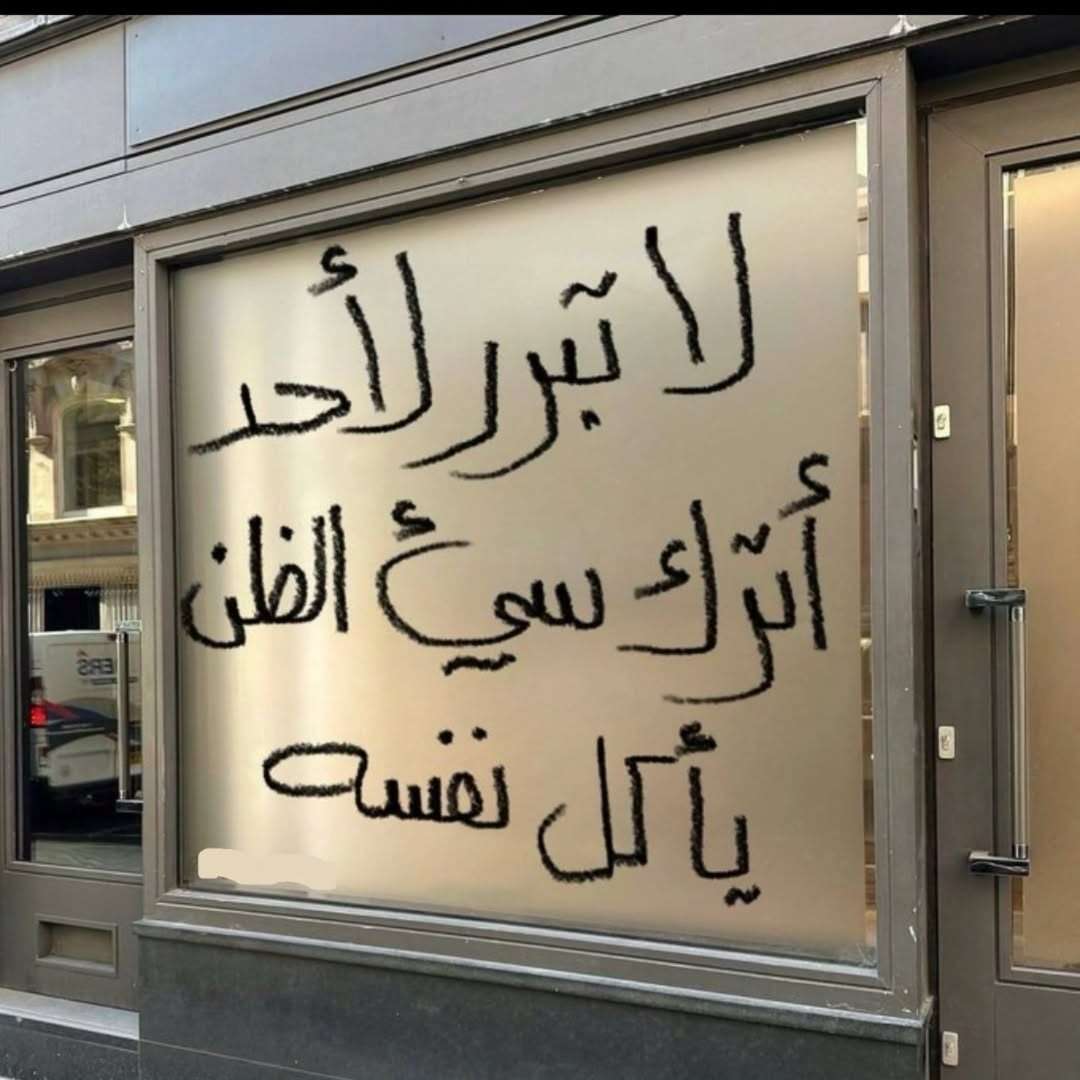 لا تبرر لأحد
أترك سيئ الظن
يأكل نفسه
ERS